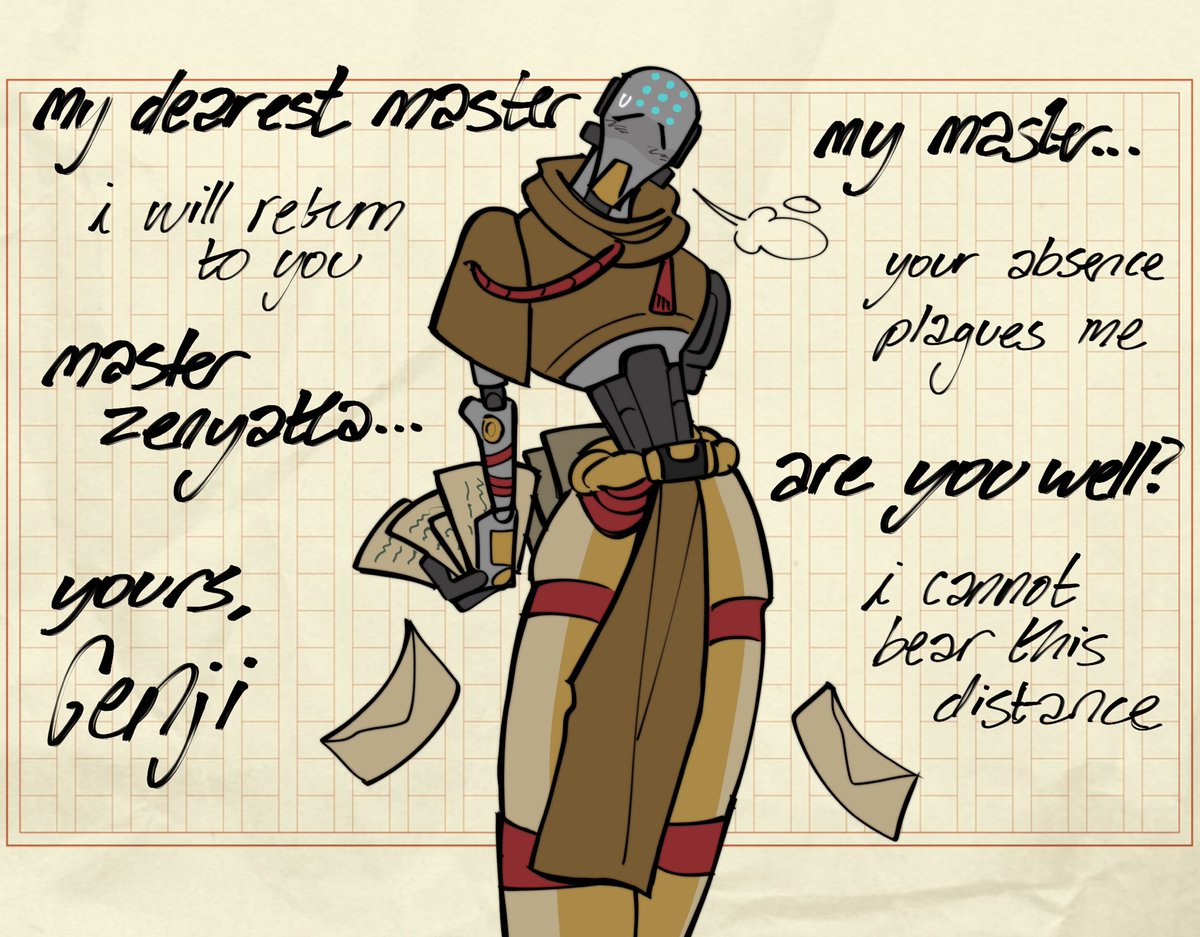 my dearest master
i will return
to you
master
zenyatta...
yours,
Genji
my master...
your absence
plagues me
are you well?
i cannot
bear this
distance